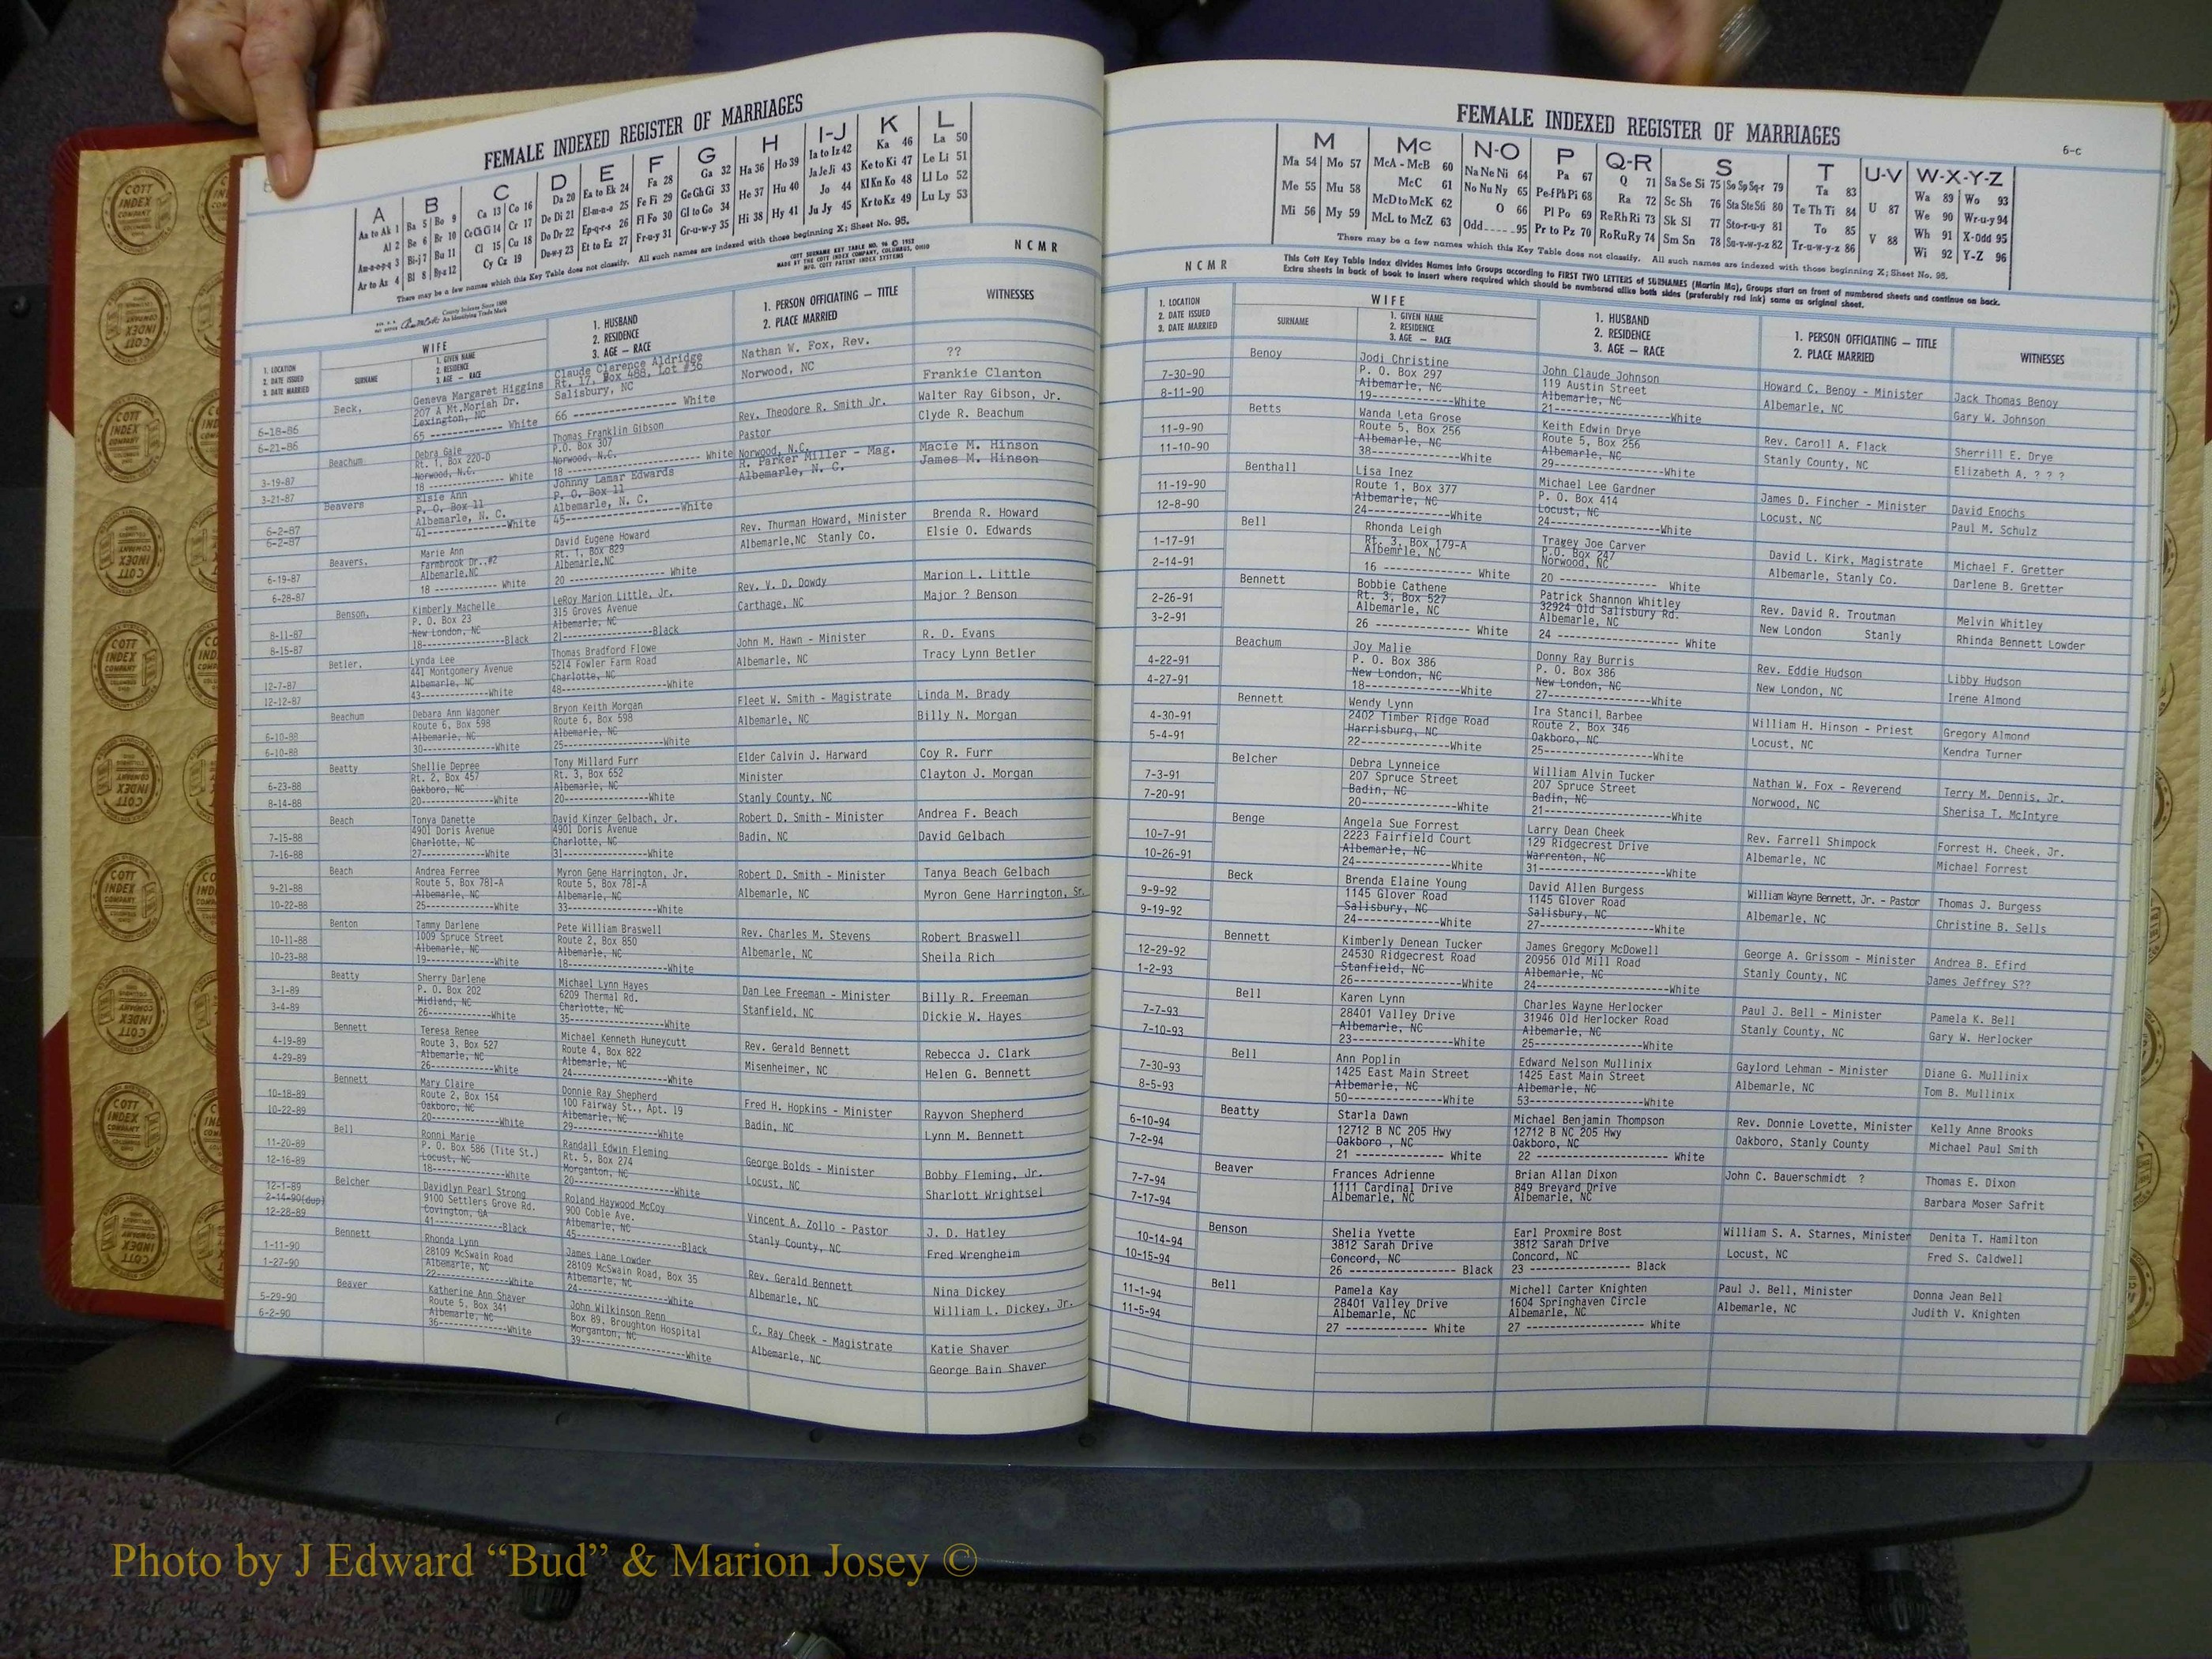 FEMALE INDEXED REGISTER OF MARRIAGES
A B C D E F G H I-J K L
Aa to Ak 1 Ba 5 Bo 9 Ca 13 Co 16 Da 20 Ea to Ek 24 Fa 28 Ga 32 Ha 36 Ho 39 Ia to Iz 42 Ka 46 La 50
Al 2 Be 6 Br 10 Ce Ch Ci 14 Cr 17 De Di 21 El-m-n-o 25 Fe Fi 29 Ge Gh Gi 33 He 37 Hu 40 Ja Je Ji 43 Ke to Ki 47 Le Li 51
Am-n-o-p-q 3 Bi-j 7 Bu 11 Cl 15 Cu 18 Do Dr 22 Ep-q-r-s 26 Fl Fo 30 Gl to Go 34 Hi 38 Hy 41 Jo 44 Kl Kn Ko 48 Ll Lo 52
Ar to Az 4 Bl 8 By-z 12 Cy Cz 19 Du-w-y 23 Et to Ez 27 Fr-u-y 31 Gr-u-w-y 35 Ju Jy 45 Kr to Kz 49 Lu Ly 53
There may be a few names which this Key Table does not classify. All such names are indexed with those beginning X; Sheet No. 95.
COTT SURNAME KEY TABLE NO. 96 © 1957
MADE BY THE COTT INDEX COMPANY, COLUMBUS, OHIO
MFG. COTT PATENT INDEX SYSTEMS
County Indexes Since 1888
An Identifying Trade Mark
NCMR
1. LOCATION
2. DATE ISSUED
3. DATE MARRIED
SURNAME
WIFE
1. GIVEN NAME
2. RESIDENCE
3. AGE — RACE
1. HUSBAND
2. RESIDENCE
3. AGE — RACE
1. PERSON OFFICIATING — TITLE
2. PLACE MARRIED
WITNESSES
6-18-86
6-21-86
Beck,
Geneva Margaret Higgins
207 A Mt.Moriah Dr.
Lexington, NC
65 ---------------- White
Claude Clarence Aldridge
Rt. 17, Box 488, Lot #36
Salisbury, NC
66 ---------------- White
Nathan W. Fox, Rev.
Norwood, NC
??
Frankie Clanton
3-19-87
3-21-87
Beachum
Debra Gale
Rt. 1, Box 220-D
Norwood, N.C.
18 ---------------- White
Thomas Franklin Gibson
P.O. Box 307
Norwood, N.C.
18 ---------------- White
Rev. Theodore R. Smith Jr.
Pastor
Norwood, N.C.
Walter Ray Gibson, Jr.
Clyde R. Beachum
6-2-87
6-2-87
Beavers
Elsie Ann
P. O. Box 11
Albemarle, N. C.
41----------------White
Johnny Lamar Edwards
P. O. Box 11
Albemarle, N. C.
45----------------White
R. Parker Miller - Mag.
Albemarle, N. C.
Macie M. Hinson
James M. Hinson
6-19-87
6-28-87
Beavers,
Marie Ann
Farmbrook Dr.,#2
Albemarle,NC
18 ---------------- White
David Eugene Howard
Rt. 1, Box 829
Albemarle,NC
20 ---------------- White
Rev. Thurman Howard, Minister
Albemarle,NC Stanly Co.
Brenda R. Howard
Elsie O. Edwards
8-11-87
8-15-87
Benson,
Kimberly Machelle
P. O. Box 23
New London, NC
18----------------Black
LeRoy Marion Little, Jr.
315 Groves Avenue
Albemarle, NC
21----------------Black
Rev. V. D. Dowdy
Carthage, NC
Marion L. Little
Major ? Benson
12-7-87
12-12-87
Betler,
Lynda Lee
441 Montgomery Avenue
Albemarle, NC
43----------------White
Thomas Bradford Flowe
5214 Fowler Farm Road
Charlotte, NC
48----------------White
John M. Hawn - Minister
Albemarle, NC
R. D. Evans
Tracy Lynn Betler
6-10-88
6-10-88
Beachum
Debara Ann Wagoner
Route 6, Box 598
Albemarle, NC
30----------------White
Bryon Keith Morgan
Route 6, Box 598
Albemarle, NC
25----------------White
Fleet W. Smith - Magistrate
Albemarle, NC
Linda M. Brady
Billy N. Morgan
6-23-88
8-14-88
Beatty
Shellie Depree
Rt. 2, Box 457
Oakboro, NC
20----------------White
Tony Millard Furr
Rt. 3, Box 652
Albemarle, NC
20----------------White
Elder Calvin J. Harward
Minister
Stanly County, NC
Coy R. Furr
Clayton J. Morgan
7-15-88
7-16-88
Beach
Tonya Danette
4901 Doris Avenue
Charlotte, NC
27----------------White
David Kinzer Gelbach, Jr.
4901 Doris Avenue
Charlotte, NC
31----------------White
Robert D. Smith - Minister
Badin, NC
Andrea F. Beach
David Gelbach
9-21-88
10-22-88
Beach
Andrea Ferree
Route 5, Box 781-A
Albemarle, NC
25----------------White
Myron Gene Harrington, Jr.
Route 5, Box 781-A
Albemarle, NC
33----------------White
Robert D. Smith - Minister
Albemarle, NC
Tanya Beach Gelbach
Myron Gene Harrington, Sr.
10-11-88
10-23-88
Benton
Tammy Darlene
1009 Spruce Street
Albemarle, NC
19----------------White
Pete William Braswell
Route 2, Box 850
Albemarle, NC
18----------------White
Rev. Charles M. Stevens
Albemarle, NC
Robert Braswell
Sheila Rich
3-1-89
3-4-89
Beatty
Sherry Darlene
P. O. Box 202
Midland, NC
26----------------White
Michael Lynn Hayes
6209 Thermal Rd.
Charlotte, NC
35----------------White
Dan Lee Freeman - Minister
Stanfield, NC
Billy R. Freeman
Dickie W. Hayes
4-19-89
4-29-89
Bennett
Teresa Renee
Route 3, Box 527
Albemarle, NC
26----------------White
Michael Kenneth Huneycutt
Route 4, Box 822
Albemarle, NC
24----------------White
Rev. Gerald Bennett
Misenheimer, NC
Rebecca J. Clark
Helen G. Bennett
10-18-89
10-22-89
Bennett
Mary Claire
Route 2, Box 154
Oakboro, NC
20----------------White
Donnie Ray Shepherd
100 Fairway St., Apt. 19
Albemarle, NC
29----------------White
Fred H. Hopkins - Minister
Badin, NC
Rayvon Shepherd
Lynn M. Bennett
11-20-89
12-16-89
Bell
Ronni Marie
P. O. Box 586 (Tite St.)
Locust, NC
18----------------White
Randall Edwin Fleming
Rt. 5, Box 274
Morganton, NC
20----------------White
George Bolds - Minister
Locust, NC
Bobby Fleming, Jr.
Sharlott Wrightsel
12-1-89
2-14-90(dup)
12-28-89
Belcher
Davidlyn Pearl Strong
9100 Settlers Grove Rd.
Covington, GA
41----------------Black
Roland Haywood McCoy
900 Coble Ave.
Albemarle, NC
45----------------Black
Vincent A. Zollo - Pastor
Stanly County, NC
J. D. Hatley
Fred Wrengheim
1-11-90
1-27-90
Bennett
Rhonda Lynn
28109 McSwain Road
Albemarle, NC
22----------------White
James Lane Lowder
28109 McSwain Road, Box 35
Albemarle, NC
24----------------White
Rev. Gerald Bennett
Albemarle, NC
Nina Dickey
William L. Dickey, Jr.
5-29-90
6-2-90
Beaver
Katherine Ann Shaver
Route 5, Box 341
Albemarle, NC
36----------------White
John Wilkinson Renn
Box 89, Broughton Hospital
Morganton, NC
39----------------White
C. Ray Cheek - Magistrate
Albemarle, NC
Katie Shaver
George Bain Shaver
FEMALE INDEXED REGISTER OF MARRIAGES
6-c
M Mc N-O P Q-R S T U-V W-X-Y-Z
Ma 54 Mo 57 McA - McB 60 Na Ne Ni 64 Pa 67 Q 71 Sa Se Si 75 So Sp Sq-r 79 Ta 83 U 87 Wa 89 Wo 93
Me 55 Mu 58 McC 61 No Nu Ny 65 Pe-f Ph Pi 68 Ra 72 Sc Sh 76 Sta Ste Sti 80 Te Th Ti 84 V 88 We 90 Wr-u-y 94
Mi 56 My 59 McD to McK 62 O 66 Pl Po 69 Re Rh Ri 73 Sk Sl 77 Sto-r-u-y 81 To 85 Wh 91 X-Odd 95
McL to McZ 63 Odd 95 Pr to Pz 70 Ro Ru Ry 74 Sm Sn 78 Su-v-w-y-z 82 Tr-u-w-y-z 86 Wi 92 Y-Z 96
There may be a few names which this Key Table does not classify. All such names are indexed with those beginning X; Sheet No. 95.
This Cott Key Table Index divides Names into Groups according to FIRST TWO LETTERS of SURNAMES (Martin Ma), Groups start on front of numbered sheets and continue on back.
Extra sheets in back of book to insert where required which should be numbered alike both sides (preferably red ink) same as original sheet.
NCMR
1. LOCATION
2. DATE ISSUED
3. DATE MARRIED
SURNAME
WIFE
1. GIVEN NAME
2. RESIDENCE
3. AGE — RACE
1. HUSBAND
2. RESIDENCE
3. AGE — RACE
1. PERSON OFFICIATING — TITLE
2. PLACE MARRIED
WITNESSES
7-30-90
8-11-90
Benoy
Jodi Christine
P. O. Box 297
Albemarle, NC
19----------------White
John Claude Johnson
119 Austin Street
Albemarle, NC
21----------------White
Howard C. Benoy - Minister
Albemarle, NC
Jack Thomas Benoy
Gary W. Johnson
11-9-90
11-10-90
Betts
Wanda Leta Grose
Route 5, Box 256
Albemarle, NC
38----------------White
Keith Edwin Drye
Route 5, Box 256
Albemarle, NC
29----------------White
Rev. Caroll A. Flack
Stanly County, NC
Sherrill E. Drye
Elizabeth A. ? ? ?
11-19-90
12-8-90
Benthall
Lisa Inez
Route 1, Box 377
Albemarle, NC
24----------------White
Michael Lee Gardner
P. O. Box 414
Locust, NC
24----------------White
James D. Fincher - Minister
Locust, NC
David Enochs
Paul M. Schulz
1-17-91
2-14-91
Bell
Rhonda Leigh
Rt. 3, Box 179-A
Albemrle, NC
16 ---------------- White
Tracey Joe Carver
P.O. Box 247
Norwood, NC
20 ---------------- White
David L. Kirk, Magistrate
Albemarle, Stanly Co.
Michael F. Gretter
Darlene B. Gretter
2-26-91
3-2-91
Bennett
Bobbie Cathene
Rt. 3, Box 527
Albemarle, NC
26 ---------------- White
Patrick Shannon Whitley
32924 Old Salisbury Rd.
Albemarle, NC
24 ---------------- White
Rev. David R. Troutman
New London Stanly
Melvin Whitley
Rhinda Bennett Lowder
4-22-91
4-27-91
Beachum
Joy Malie
P. O. Box 386
New London, NC
18----------------White
Donny Ray Burris
P. O. Box 386
New London, NC
27----------------White
Rev. Eddie Hudson
New London, NC
Libby Hudson
Irene Almond
4-30-91
5-4-91
Bennett
Wendy Lynn
2402 Timber Ridge Road
Harrisburg, NC
22----------------White
Ira Stancil Barbee
Route 2, Box 346
Oakboro, NC
25----------------White
William H. Hinson - Priest
Locust, NC
Gregory Almond
Kendra Turner
7-3-91
7-20-91
Belcher
Debra Lynneice
207 Spruce Street
Badin, NC
20----------------White
William Alvin Tucker
207 Spruce Street
Badin, NC
21----------------White
Nathan W. Fox - Reverend
Norwood, NC
Terry M. Dennis, Jr.
Sherisa T. McIntyre
10-7-91
10-26-91
Benge
Angela Sue Forrest
2223 Fairfield Court
Albemarle, NC
24----------------White
Larry Dean Cheek
129 Ridgecrest Drive
Warrenton, NC
31----------------White
Rev. Farrell Shimpock
Albemarle, NC
Forrest H. Cheek, Jr.
Michael Forrest
9-9-92
9-19-92
Beck
Brenda Elaine Young
1145 Glover Road
Salisbury, NC
24----------------White
David Allen Burgess
1145 Glover Road
Salisbury, NC
27----------------White
William Wayne Bennett, Jr. - Pastor
Albemarle, NC
Thomas J. Burgess
Christine B. Sells
12-29-92
1-2-93
Bennett
Kimberly Denean Tucker
24530 Ridgecrest Road
Stanfield, NC
26----------------White
James Gregory McDowell
20956 Old Mill Road
Albemarle, NC
24----------------White
George A. Grissom - Minister
Stanly County, NC
Andrea B. Efird
James Jeffrey S??
7-7-93
7-10-93
Bell
Karen Lynn
28401 Valley Drive
Albemarle, NC
23----------------White
Charles Wayne Herlocker
31946 Old Herlocker Road
Albemarle, NC
25----------------White
Paul J. Bell - Minister
Stanly County, NC
Pamela K. Bell
Gary W. Herlocker
7-30-93
8-5-93
Bell
Ann Poplin
1425 East Main Street
Albemarle, NC
50----------------White
Edward Nelson Mullinix
1425 East Main Street
Albemarle, NC
53----------------White
Gaylord Lehman - Minister
Albemarle, NC
Diane G. Mullinix
Tom B. Mullinix
6-10-94
7-2-94
Beatty
Starla Dawn
12712 B NC 205 Hwy
Oakboro , NC
21 ---------------- White
Michael Benjamin Thompson
12712 B NC 205 Hwy
Oakboro, NC
22 ---------------- White
Rev. Donnie Lovette, Minister
Oakboro, Stanly County
Kelly Anne Brooks
Michael Paul Smith
7-7-94
7-17-94
Beaver
Frances Adrienne
1111 Cardinal Drive
Albemarle, NC
Brian Allan Dixon
849 Brevard Drive
Albemarle, NC
John C. Bauerschmidt ?
Thomas E. Dixon
Barbara Moser Safrit
10-14-94
10-15-94
Benson
Shelia Yvette
3812 Sarah Drive
Concord, NC
26 ---------------- Black
Earl Proxmire Bost
3812 Sarah Drive
Concord, NC
23 ---------------- Black
William S. A. Starnes, Minister
Locust, NC
Denita T. Hamilton
Fred S. Caldwell
11-1-94
11-5-94
Bell
Pamela Kay
28401 Valley Drive
Albemarle, NC
27 ---------------- White
Michell Carter Knighten
1604 Springhaven Circle
Albemarle, NC
27 ---------------- White
Paul J. Bell, Minister
Albemarle, NC
Donna Jean Bell
Judith V. Knighten
COTT
INDEX
COMPANY
Photo by J Edward “Bud” & Marion Josey ©